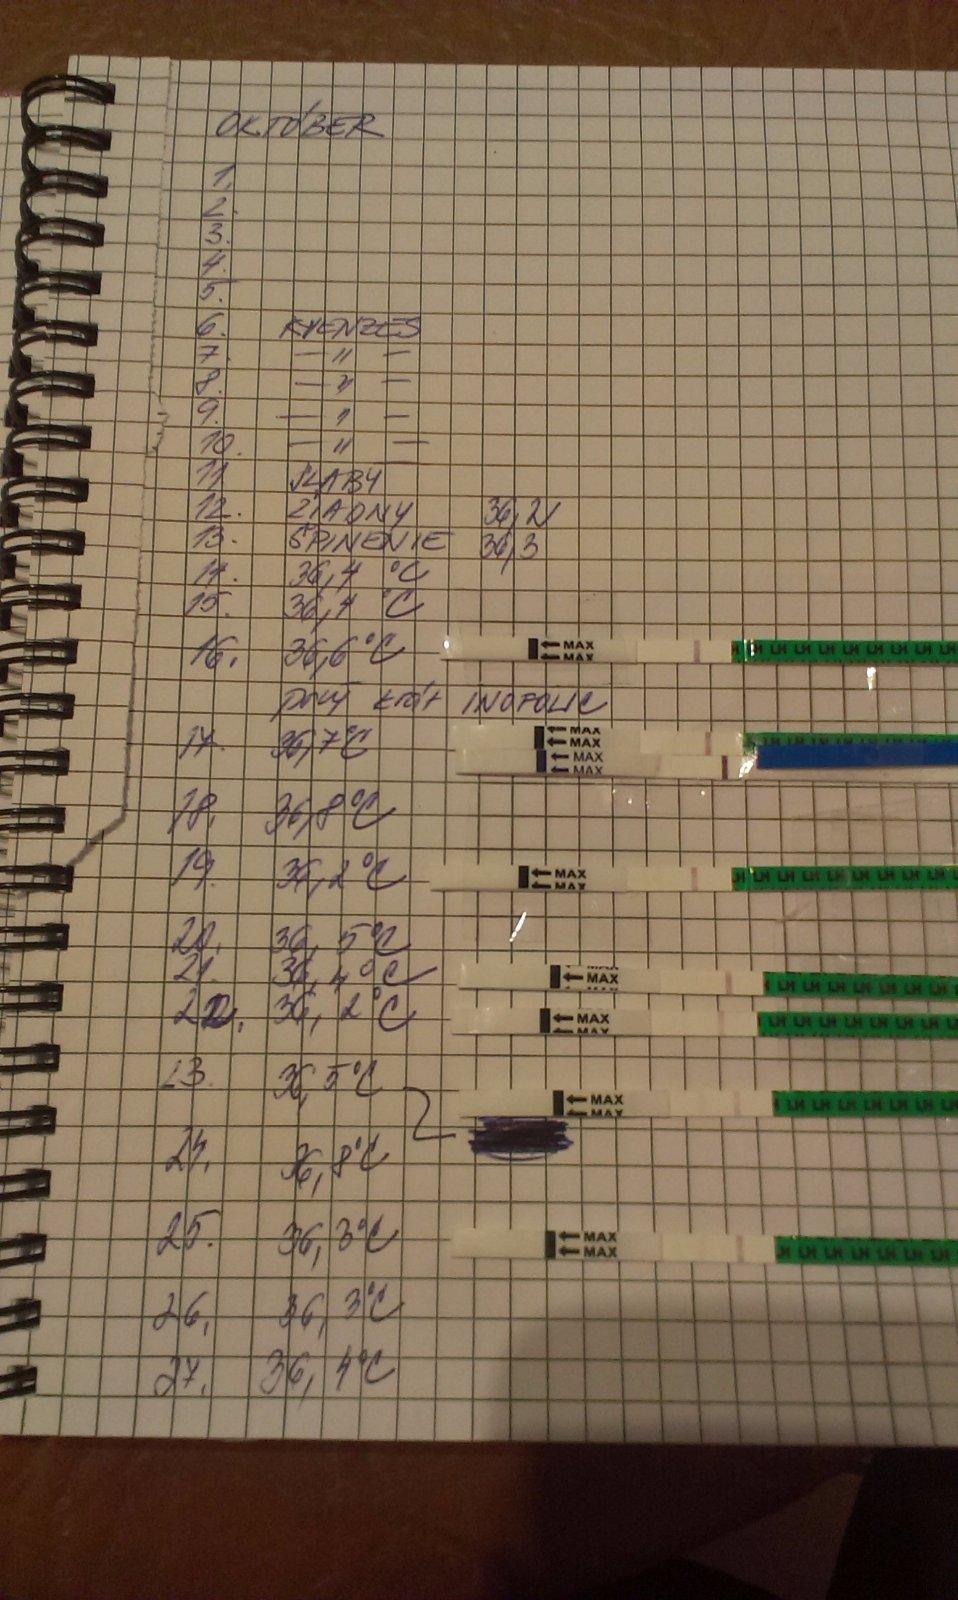 OKTÓBER
1.
2.
3.
4.
5.
6. KRENZES
7. — " —
8. — " —
9. — " —
10. — " —
11. SLABÝ
12. ŽIADNY 36,2
13. ŠPINENIE 36,3
14. 36,4 °C
15. 36,4 °C
16. 36,6 °C ← MAX ← MAX LH LH LH LH LH LH
prvý krát INOFOLIC
17. 36,7 °C ← MAX ← MAX
← MAX ← MAX
18. 36,8 °C
19. 36,2 °C ← MAX ← MAX LH LH LH LH LH LH
20. 36,5 °C
21. 36,4 °C ← MAX LH LH LH LH LH
22. 36,2 °C ← MAX ← MAX LH LH LH LH LH
23. 36,5 °C ← MAX ← MAX LH LH LH LH LH
24. 36,8 °C
25. 36,3 °C ← MAX ← MAX LH LH LH LH LH
26. 36,3 °C
27. 36,4 °C